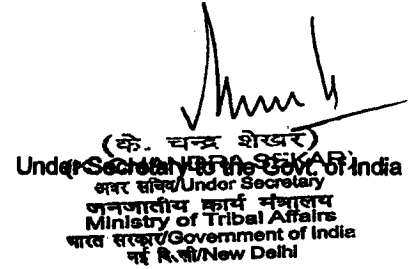 (के. चन्द्र शेखर)
(K. CHANDRA SEKAR)
Under Secretary to the Govt. of India
अवर सचिव/Under Secretary
जनजातीय कार्य मंत्रालय
Ministry of Tribal Affairs
भारत सरकार/Government of India
नई दि.ली/New Delhi